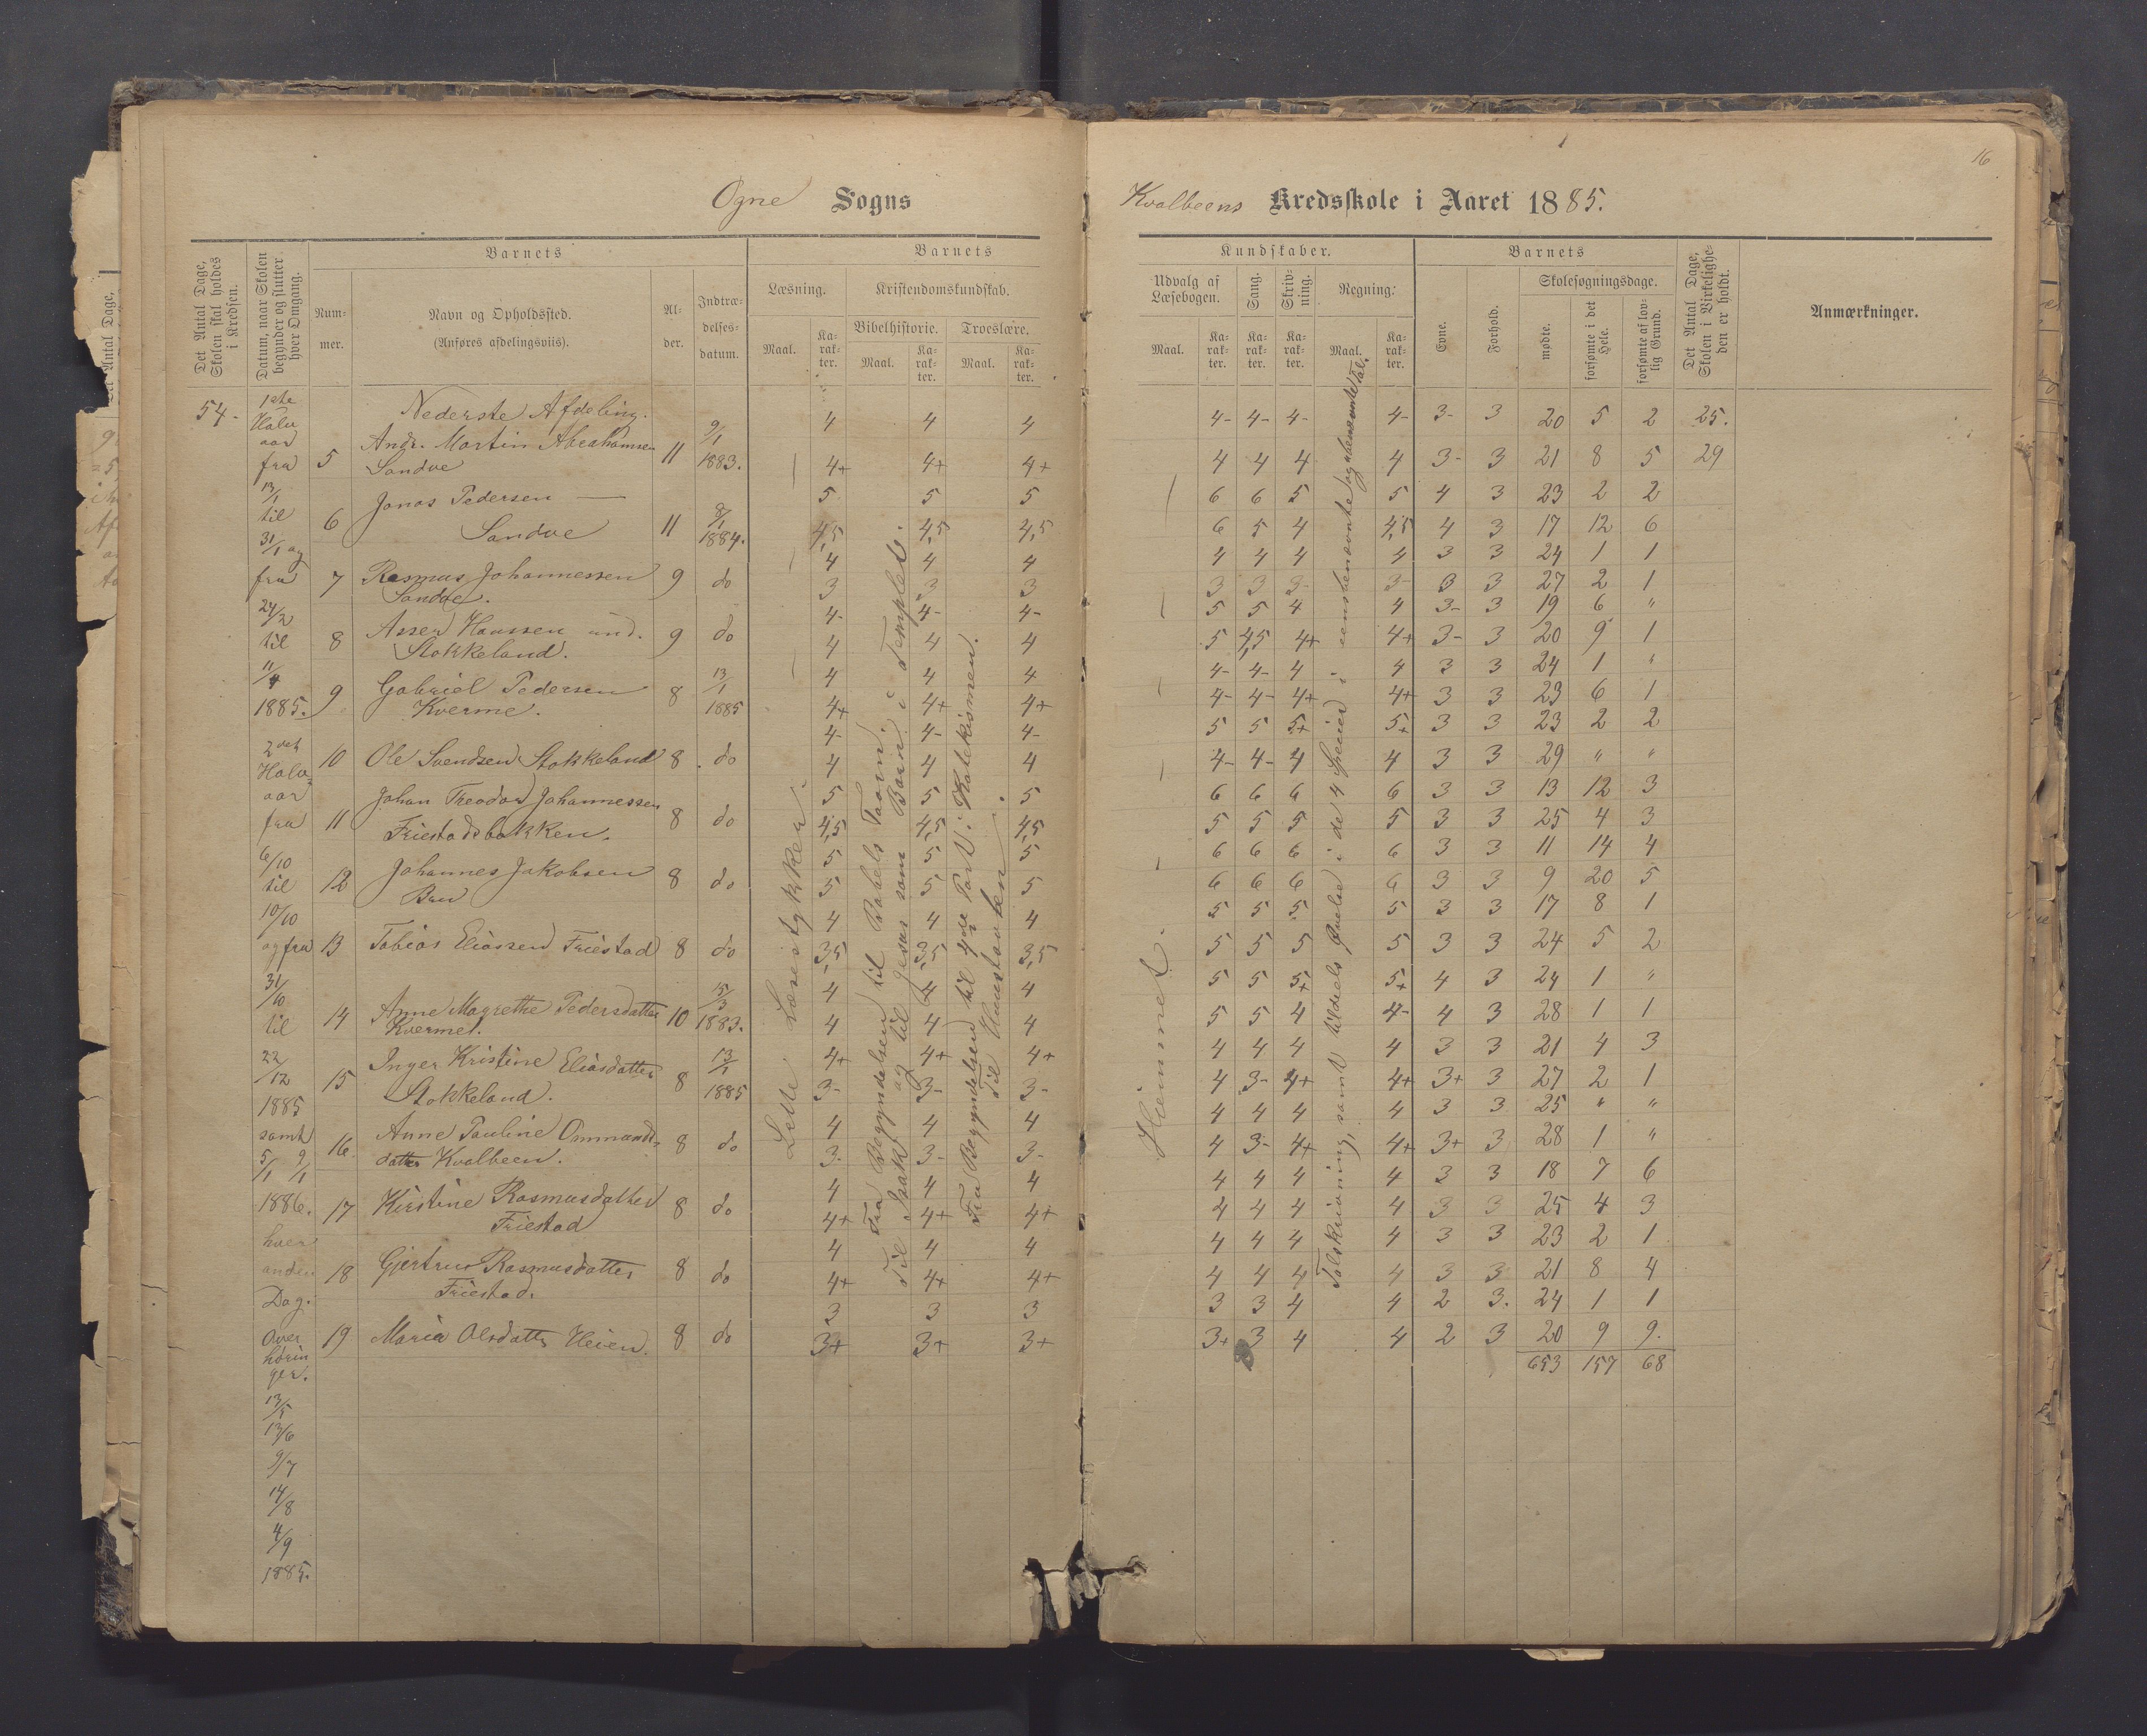 16
Ogne Sogns
Kvalbeens Kredsskole i Aaret 1885.
Det Antal Dage, Skolen skal holdes i Kredsen.
Datum, naar Skolen begynder og slutter hver Omgang.
Barnets
Num-
mer.
Navn og Opholdssted.
(Anføres afdelingsviis).
Al-
der.
Indtræ-
delses-
datum.
Barnets
Læsning.
Maal.
Ka-
rak-
ter.
Kristendomskundskab.
Bibelhistorie.
Maal.
Ka-
rak-
ter.
Troeslære.
Maal.
Ka-
rak-
ter.
Kundskaber.
Udvalg af
Læsebogen.
Maal.
Ka-
rak-
ter.
Sang.
Ka-
rak-
ter.
Skriv-
ning.
Ka-
rak-
ter.
Regning.
Maal.
Ka-
rak-
ter.
Barnets
Evne.
Forhold.
Skolesøgningsdage.
mødte.
forsømte i det Hele.
forsømte af lov-
lig Grund.
Det Antal Dage, Skolen i Virkelighe-
den er holdt.
Anmærkninger.
54-
1ste
Halv
aar
fra
13/1
til
31/1 og
fra
24/2
til
11/4
1885.
2det
Halv
aar
fra
6/10
til
10/10
og fra
31/10
til
22/12
1885
samt
5/1 9/1
1886.
hver
anden
Dag.
Over
hørin
ger.
13/5
13/6
9/7
14/8
4/9
1885.
Nederste Afdeling.
5 Andr. Martin Abrahamsen
Sandve 11 9/1 1883.
6 Jonas Pedersen —
Sandve 11 8/1 1884.
7 Rasmus Johannessen
Sandve. 9 do
8 Asser Hanssen und.
Stokkeland. 9 do
9 Gabriel Pedersen
Kverme. 8 13/1 1885
10 Ole Svendsen Stokkeland 8 do
11 Johan Theodor Johannessen
Friestadbakken. 8 do
12 Johannes Jakobsen
8 do
13 Tobias Eliassen Friestad 8 do
14 Anne Magrethe Pedersdatter
Kverme. 10 15/3 1883.
15 Inger Kristine Eliasdatter
Stokkeland. 8 13/1 1885
16 Anne Pauline Ommunds-
datter Kvalbeen. 8 do
17 Kirstine Rasmusdatter
Friestad 8 do
18 Gjertrud Rasmusdatter
Friestad. 8 do
19 Maria Olsdatter Heien. 8 do
Lette Læsestykker.
Fra Begyndelsen til Babels Taarn.
Til Isak og til Jesus som Barn i Templet.
Fra Begyndelsen til 4de Part i Katekismen.
Til Hustavlen.
Hjemmet.
Talskrivning, samt tildels Øvelse i de 4 Specier i eensbenævnte og ubenævnte Tal.
4 4 4
4+ 4+ 4+
5 5 5
4,5 4,5 4,5
4 4 4
3 3 3
4- 4- 4-
4 4 4
4 4 4
4+ 4+ 4+
4- 4- 4-
4 4 4
5 5 5
4,5 4,5 4,5
5 5 5
5 5 5
4 4 4
3,5 3,5 3,5
4 4 4
4 4 4
4+ 4+ 4+
3- 3- 3-
4 4 4
3- 3- 3-
4 4 4
4+ 4+ 4+
4 4 4
4+ 4+ 4+
3 3 3
3+ 3+ 3+
4- 4- 4- 4- 3- 3 20 5 2 25.
4 4 4 4 3- 3 21 8 5 29
6 6 5 5 4 3 23 2 2
6 5 4 4,5 4 3 17 12 6
4 4 4 4 3 3 24 1 1
3 3 3- 3- 3 3 27 2 1
5 5 4 4 3- 3 19 6 "
5 4,5 4+ 4+ 3- 3 20 9 1
4- 4- 4 4 3 3 24 1 "
4- 4- 4+ 4+ 3 3 23 6 1
5 5 5+ 5+ 3 3 23 2 2
4- 4- 4 4 3 3 29 " "
6 6 6 6 3 3 13 12 3
5 5 5 5 3 3 25 4 3
6 6 6 6 3 3 11 14 4
6 6 6 6 3 3 9 20 5
5 5 5 5 3 3 17 8 1
5 5 5 5 3 3 24 5 2
5 5 5+ 5+ 4 3 24 1 "
5 5 4 4- 4 3 28 1 1
4 4 4 4 3 3 21 4 3
4 3- 4+ 4+ 3+ 3 27 2 1
4 4 4 4 3 3 25 " "
4 3- 4+ 4+ 3+ 3 28 1 "
4 4 4 4 3 3 18 7 6
4 4 4 4 3 3 25 4 3
4 4 4 4 3 3 23 2 1
4 4 4 4 3 3 21 8 4
3 3 4 4 2 3. 24 1 1
3+ 3 4 4 2 3 20 9 9.
653 157 68